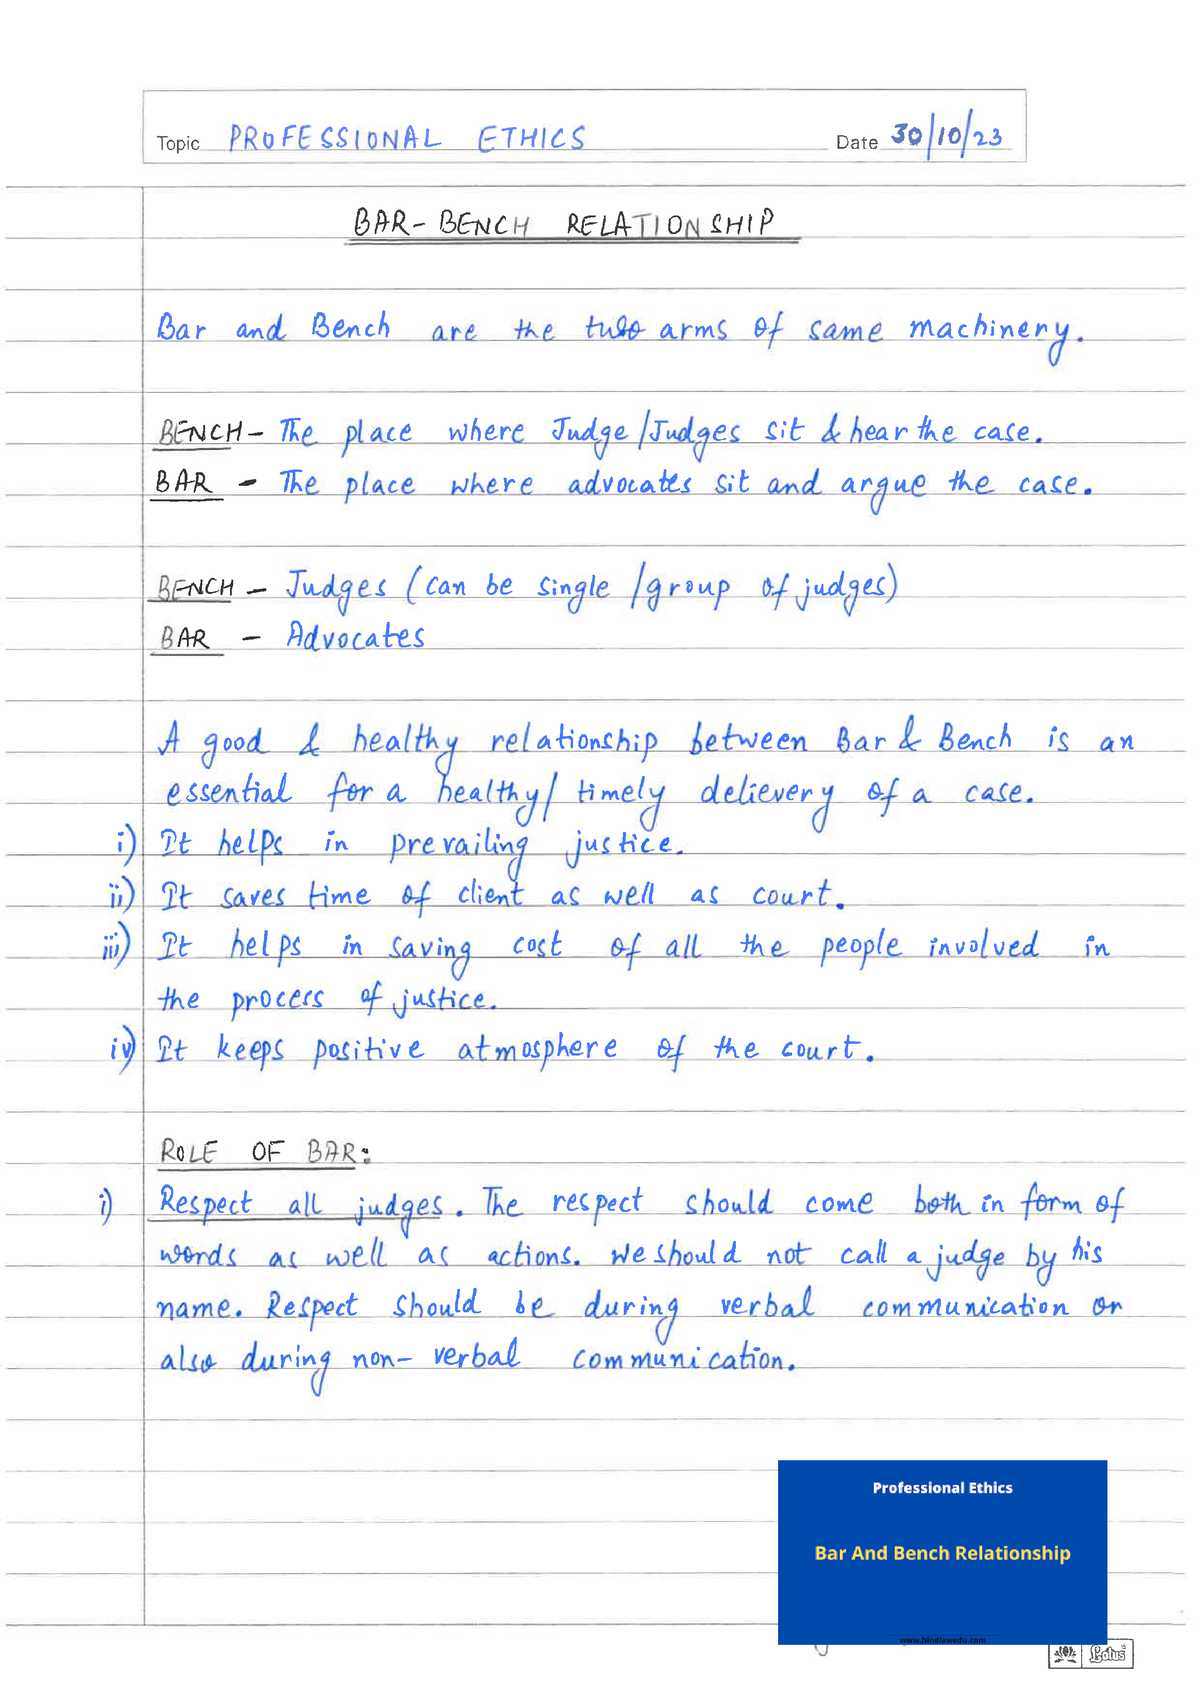 Topic PROFESSIONAL ETHICS Date 30/10/23
BAR-BENCH RELATIONSHIP
Bar and Bench are the two arms of same machinery.
BENCH - The place where Judge/Judges sit & hear the case.
BAR - The place where advocates sit and argue the case.
BENCH - Judges (can be single/group of judges)
BAR - Advocates
A good & healthy relationship between Bar & Bench is an
essential for a healthy/timely delievery of a case.
i) It helps in prevailing justice.
ii) It saves time of client as well as court.
iii) It helps in saving cost of all the people involved in
the process of justice.
iv) It keeps positive atmosphere of the court.
ROLE OF BAR:
i) Respect all judges. The respect should come both in form of
words as well as actions. We should not call a judge by his
name. Respect should be during verbal communication or
also during non-verbal communication.
Professional Ethics
Bar And Bench Relationship
www.hindlawedu.com
Lotus